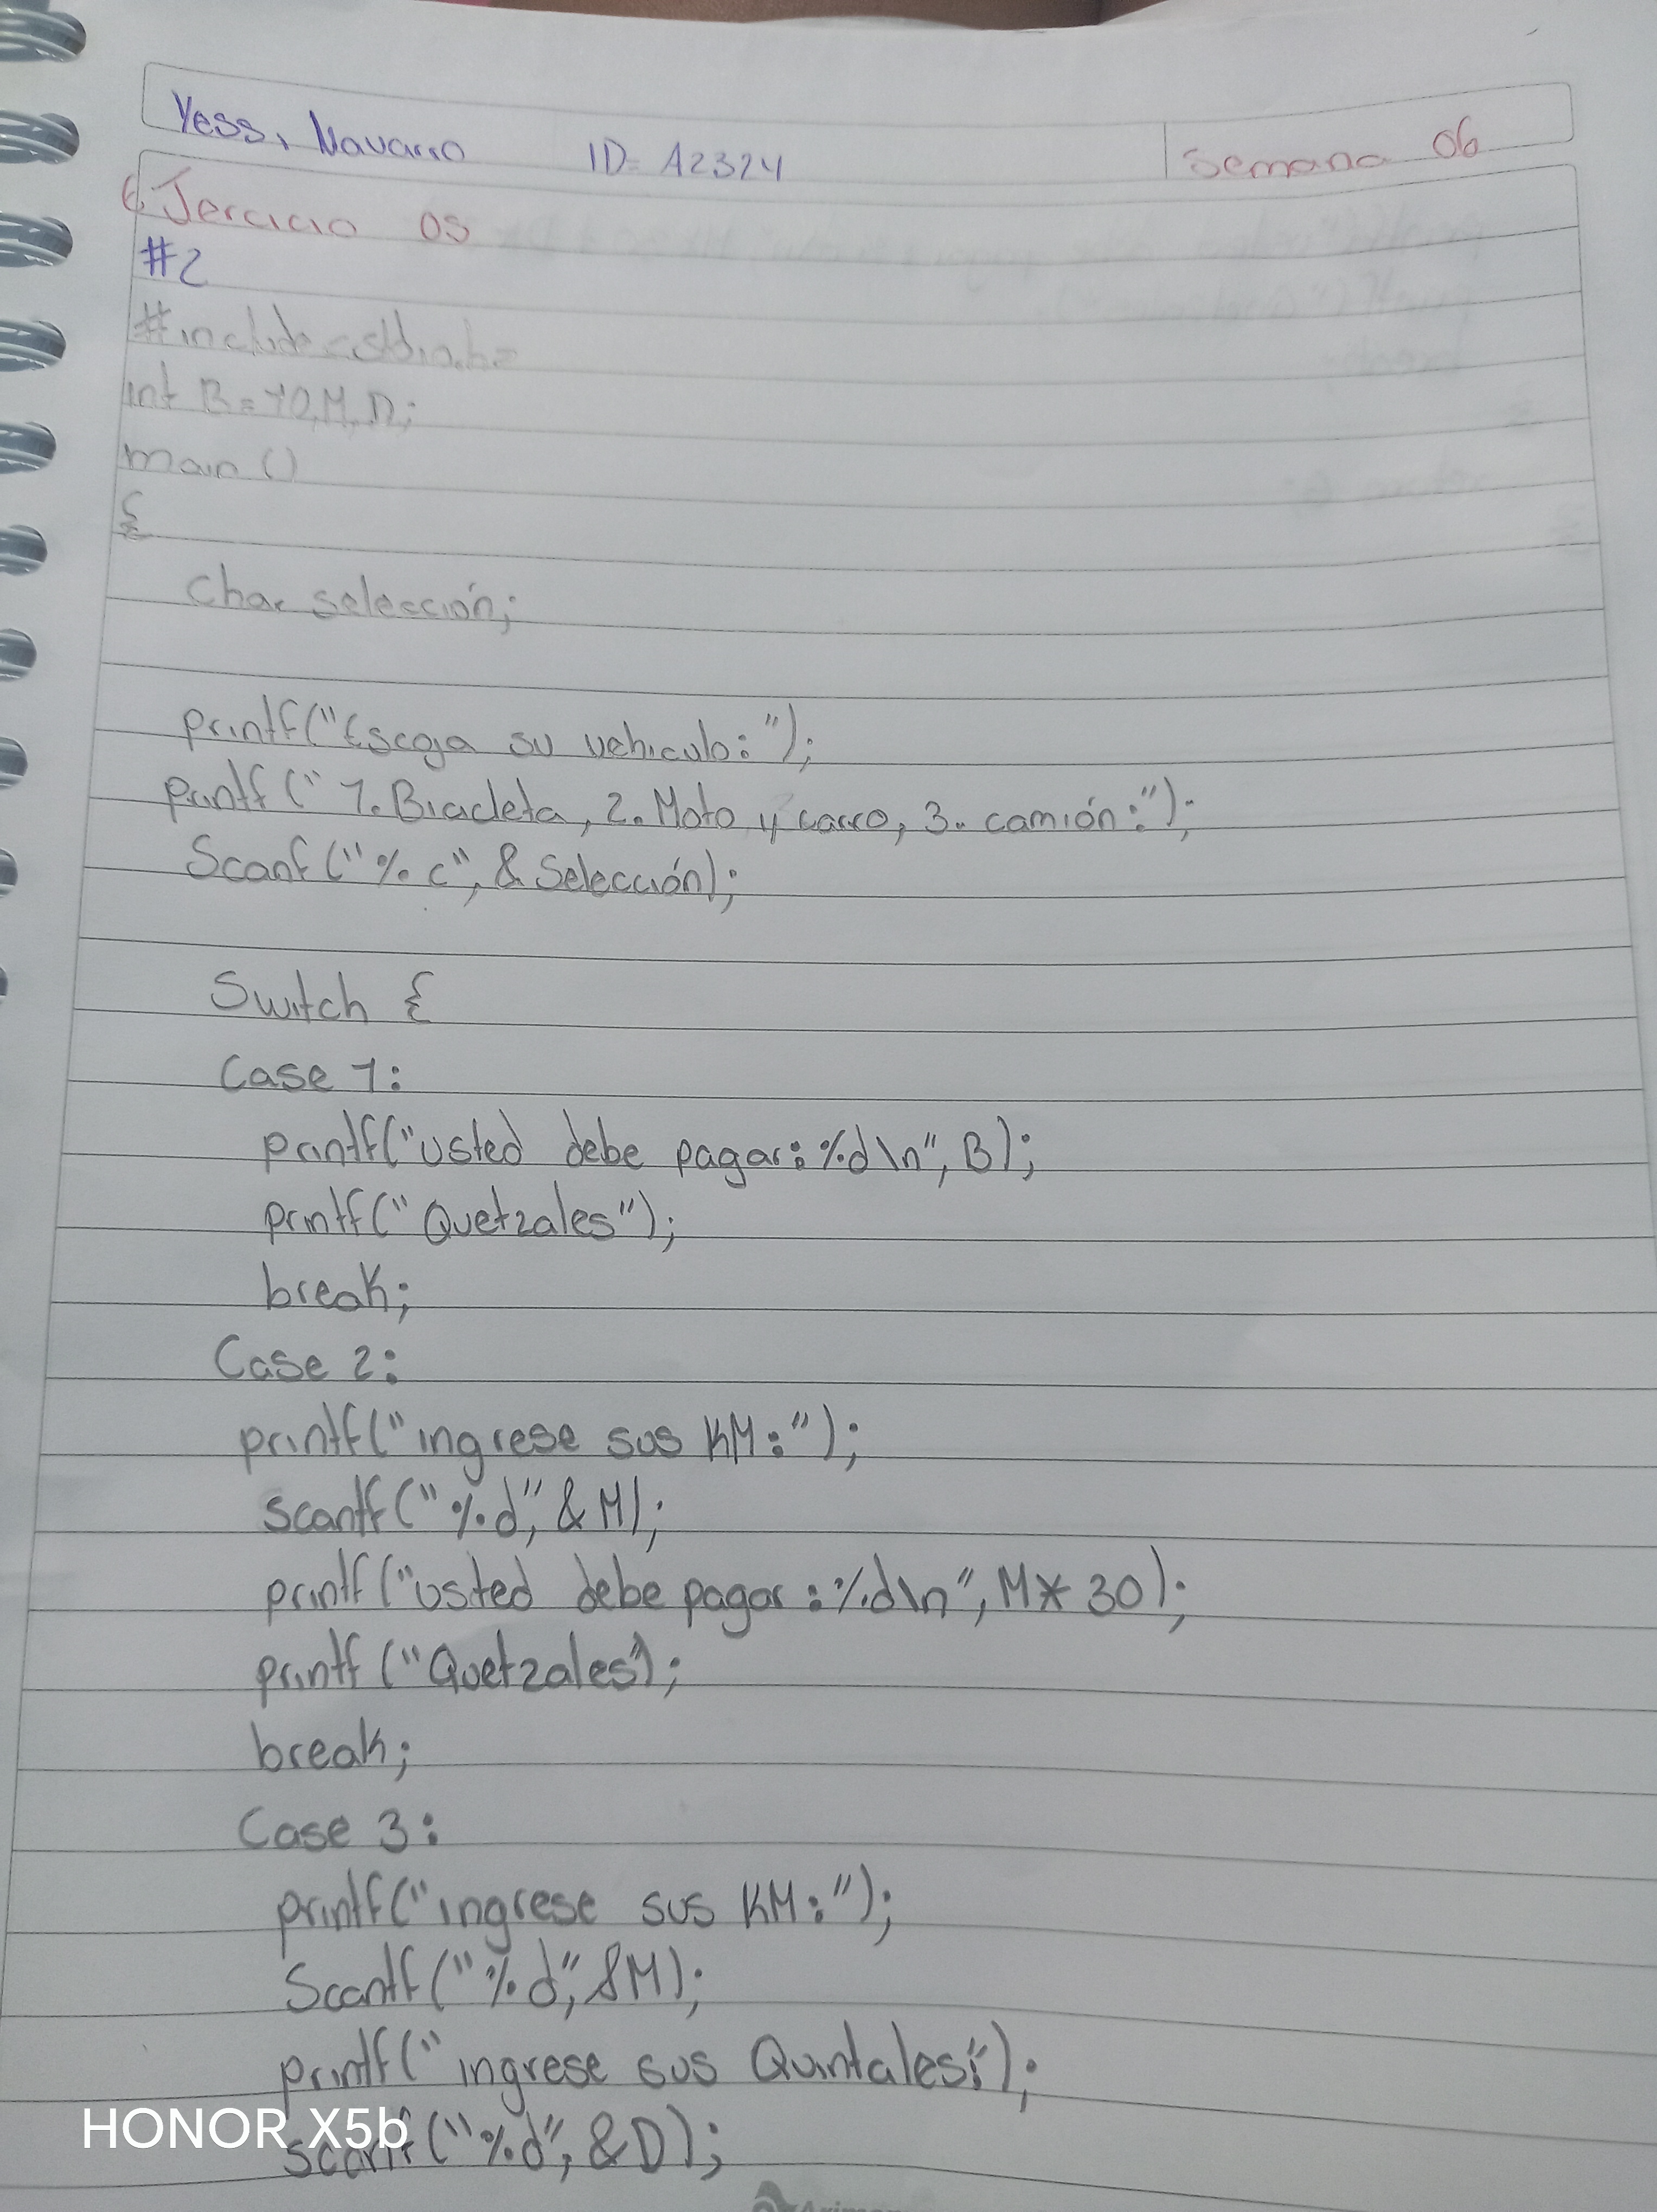 Yess, Navarro ID= A2324 Semana 06
Ejercicio 05
#2
#include<stdio.h>
int B=10,M,D;
main ()
{
char selección;
printf("Escoja su vehiculo:");
printf(" 1. Bicicleta, 2. Moto y carro, 3. camión:");
Scanf("%c", & Selección);
Switch {
Case 1:
printf("usted debe pagar: %d\n", B);
printf("Quetzales");
break;
Case 2:
printf("ingrese sus KM:");
scanf("%d", & M);
printf("usted debe pagar: %d\n", M* 30);
printf ("Quetzales");
break;
Case 3:
printf("ingrese sus KM:");
Scanf("%d", &M);
printf("ingrese sus Quintales:");
scanf("%d", &D);
HONOR X5b